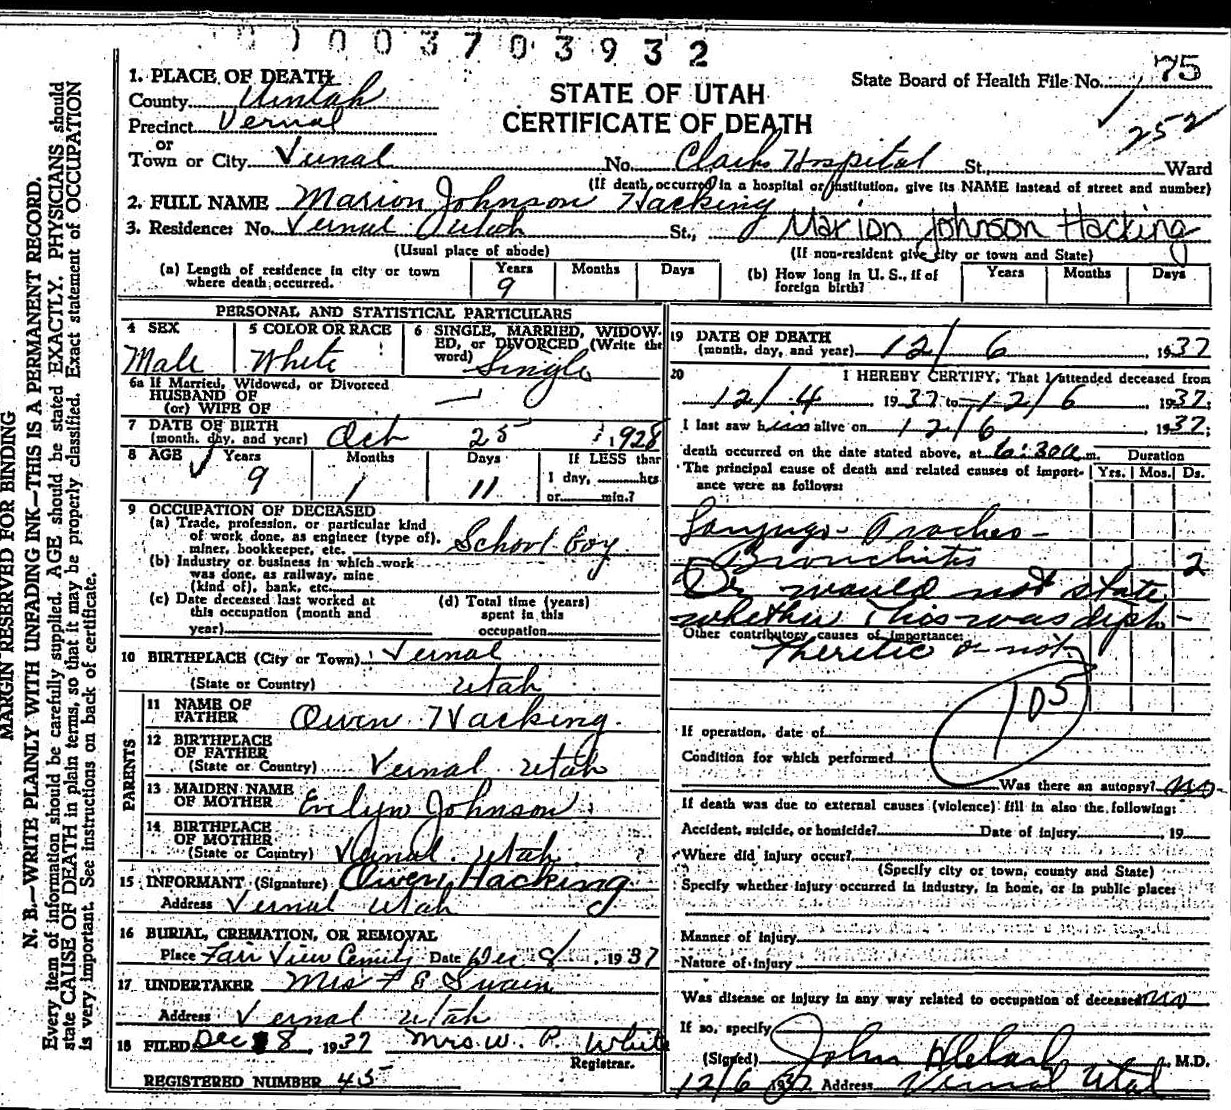 0003703932
1. PLACE OF DEATH
County Uintah
Precinct Vernal
or
Town or City Vernal No. Clark Hospital St., Ward
STATE OF UTAH
CERTIFICATE OF DEATH
State Board of Health File No. 175
252
(If death occurred in a hospital or institution, give its NAME instead of street and number)
2. FULL NAME Marion Johnson Hacking
3. Residence: No. Vernal Utah St., Marion Johnson Hacking
(Usual place of abode) (If non-resident give city or town and State)
(a) Length of residence in city or town where death occurred. Years 9 Months Days
(b) How long in U. S., if of foreign birth? Years Months Days
PERSONAL AND STATISTICAL PARTICULARS
4 SEX Male
5 COLOR OR RACE White
6 SINGLE, MARRIED, WIDOWED, or DIVORCED (Write the word) Single
6a If Married, Widowed, or Divorced
HUSBAND OF
(or) WIFE OF —
7 DATE OF BIRTH
(month, day, and year) Oct 25 1928
8 AGE Years 9 Months 1 Days 11 If LESS than
1 day, hrs
or min.?
9 OCCUPATION OF DECEASED
(a) Trade, profession, or particular kind
of work done, as engineer (type of),
miner, bookkeeper, etc. School boy
(b) Industry or business in which work
was done, as railway, mine
(kind of), bank, etc.
(c) Date deceased last worked at
this occupation (month and
year)
(d) Total time (years)
spent in this
occupation
10 BIRTHPLACE (City or Town) Vernal
(State or Country) Utah
PARENTS
11 NAME OF
FATHER Owen Hacking
12 BIRTHPLACE
OF FATHER
(State or Country) Vernal Utah
13 MAIDEN NAME
OF MOTHER Evelyn Johnson
14 BIRTHPLACE
OF MOTHER
(State or Country) Vernal Utah
15 INFORMANT (Signature) Owen Hacking
Address Vernal Utah
16 BURIAL, CREMATION, OR REMOVAL
Place Fair View Cemity Date Dec 8 1937
17 UNDERTAKER Mrs F E Swain
Address Vernal Utah
18 FILED Dec 8, 1937 Mrs. W. P. White
Registrar.
REGISTERED NUMBER 45
19 DATE OF DEATH
(month, day, and year) 12/6 1937
20 I HEREBY CERTIFY, That I attended deceased from
12/4 1937 to 12/6 1937;
I last saw him alive on 12/6 1937;
death occurred on the date stated above, at 6:30 a m. Duration
The principal cause of death and related causes of importance were as follows: Yrs. Mos. Ds.
Laryngo-Tracheo-
Bronchitis 2
Dr would not state
whether this was diph-
Other contributory causes of importance:
theretic or not
105
If operation, date of
Condition for which performed
Was there an autopsy? no
If death was due to external causes (violence) fill in also the following:
Accident, suicide, or homicide? Date of injury , 19
Where did injury occur?
(Specify city or town, county and State)
Specify whether injury occurred in industry, in home, or in public place:
Manner of injury
Nature of injury
Was disease or injury in any way related to occupation of deceased no
If so, specify
(Signed) John , M.D.
12/6 1937 Address Vernal Utah
MARGIN RESERVED FOR BINDING
N. B.—WRITE PLAINLY WITH UNFADING INK—THIS IS A PERMANENT RECORD.
Every item of information should be carefully supplied. AGE should be stated EXACTLY. PHYSICIANS should
state CAUSE OF DEATH in plain terms, so that it may be properly classified. Exact statement of OCCUPATION
is very important. See instructions on back of certificate.